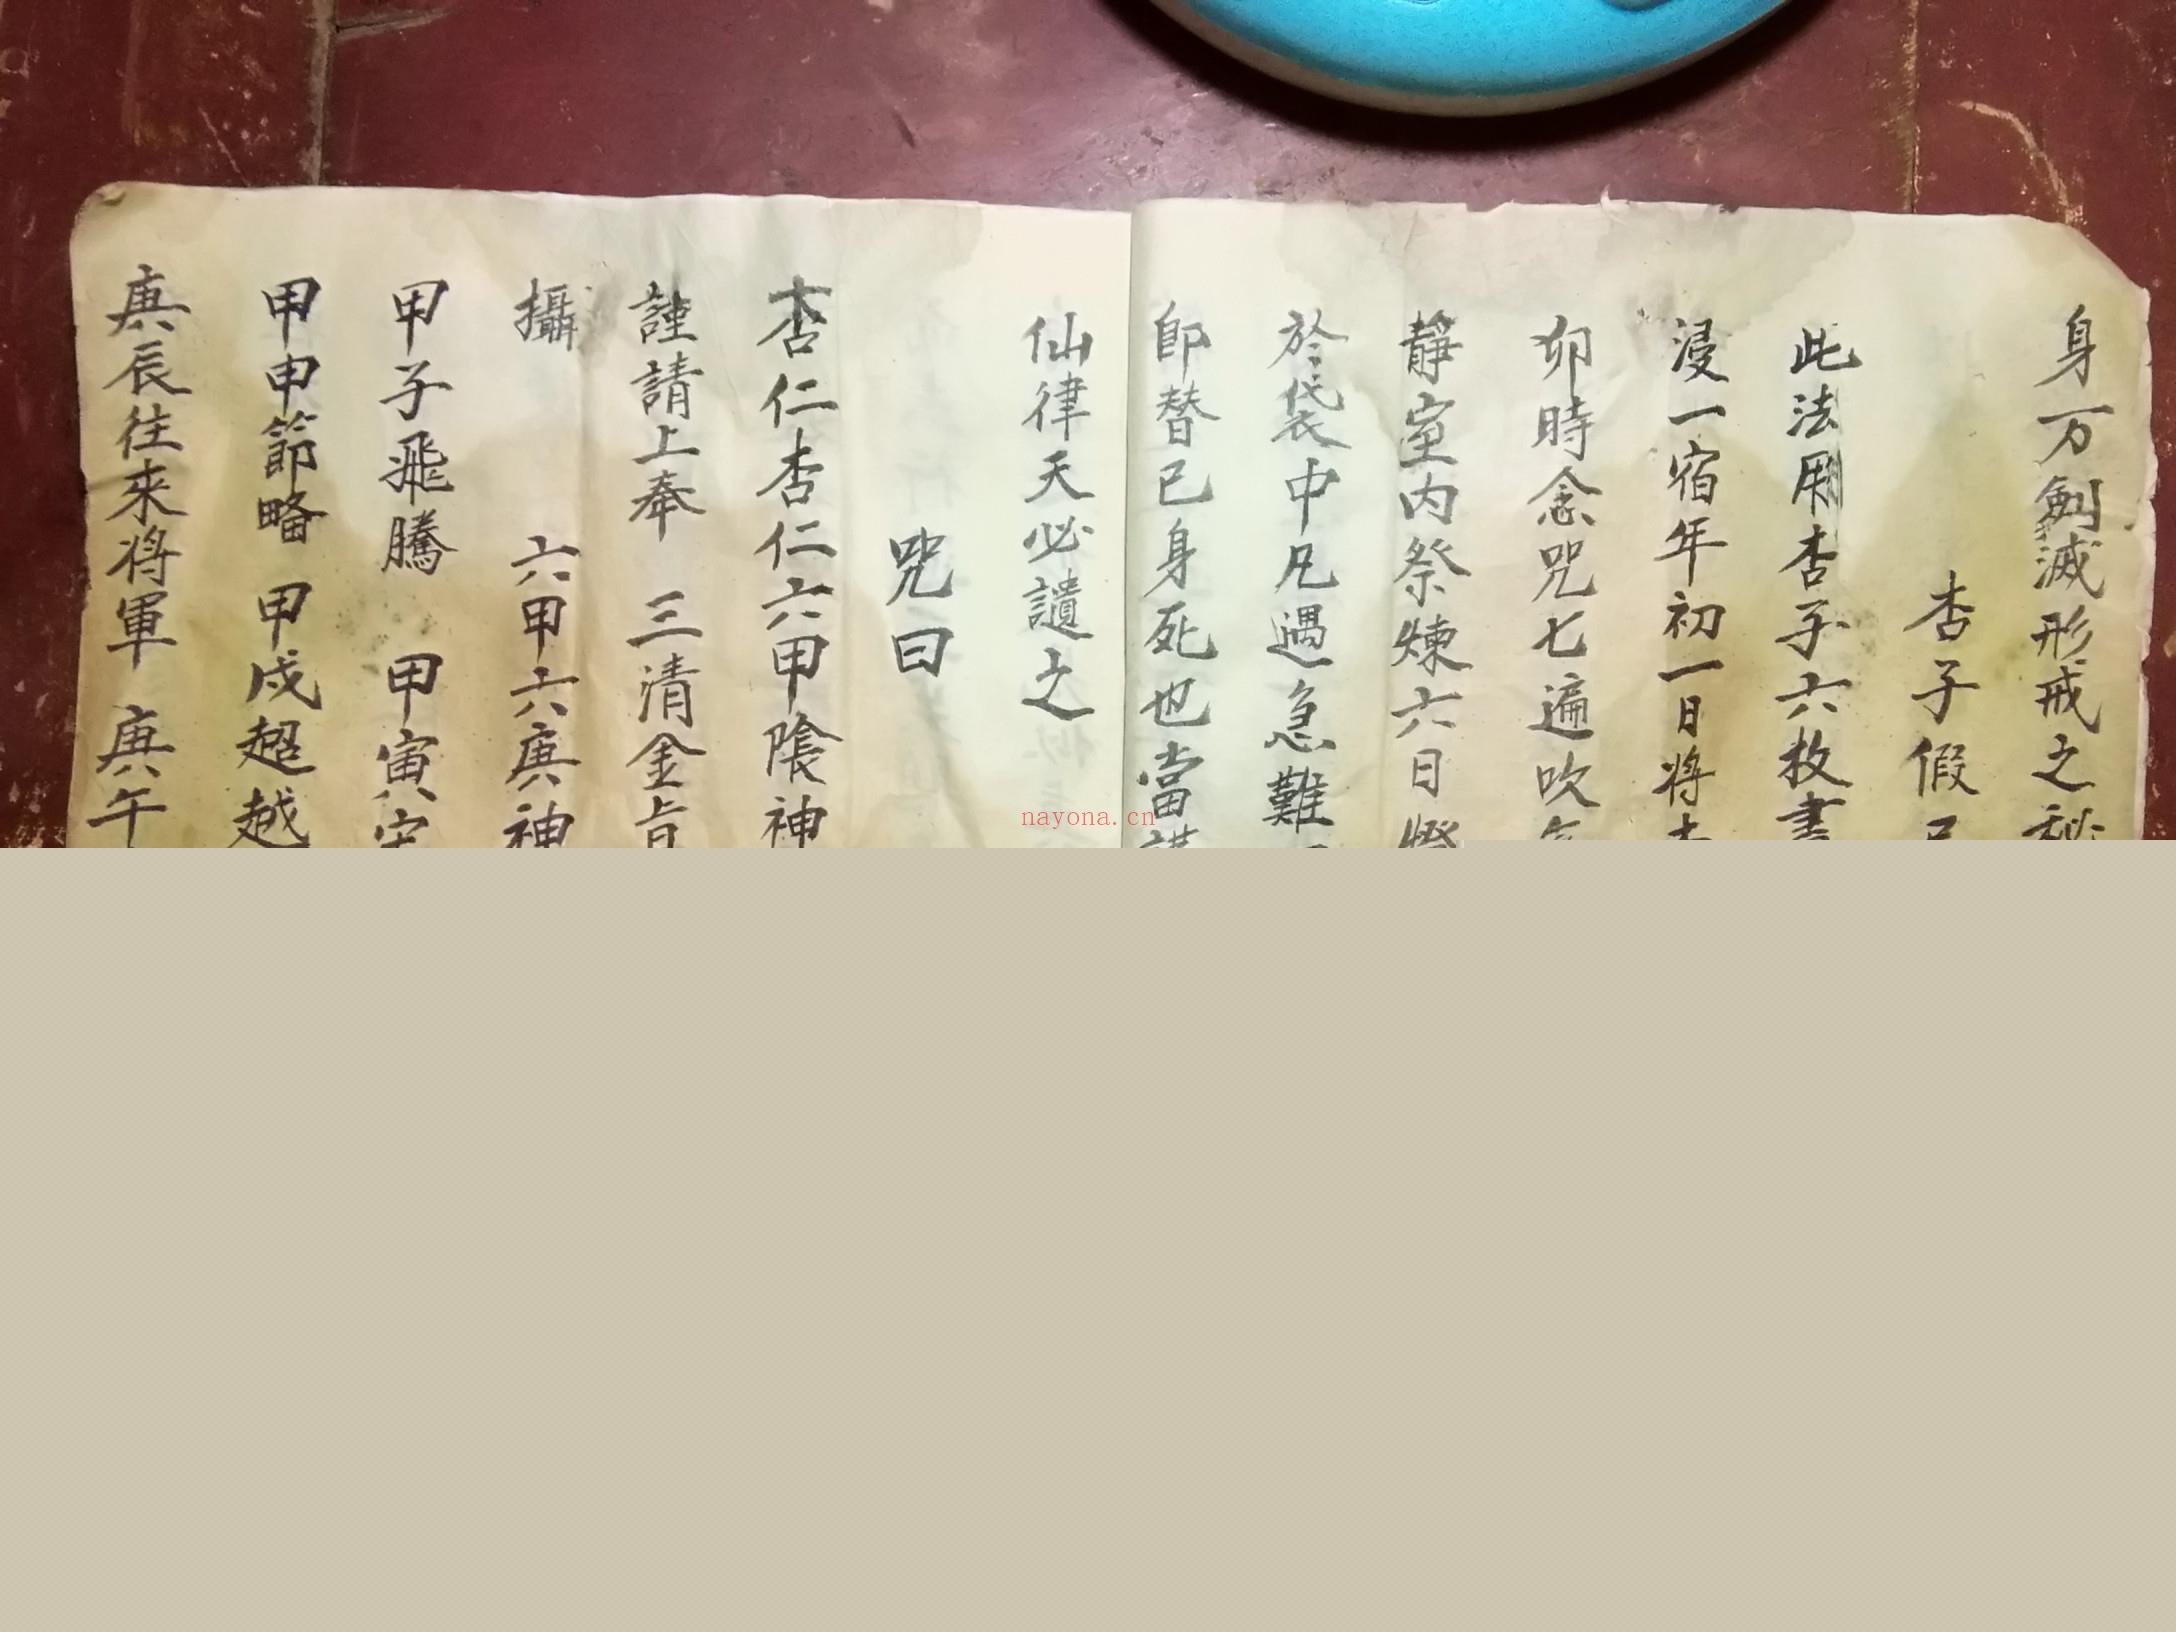 身万劍滅形戒之秘
杏子假
此法用杏子六枚書
浸一宿年初一日將
卯時念咒七遍吹
靜室内祭煉六日
於袋中凡遇急難
即替已身死也當
仙律天必譴之
咒曰
杏仁杏仁六甲陰神
謹請上奉 三清金旨
攝 六甲六庚神
甲子飛騰 甲寅
甲申節略 甲戌超越
庚辰往來將軍 庚午
nayona.cn